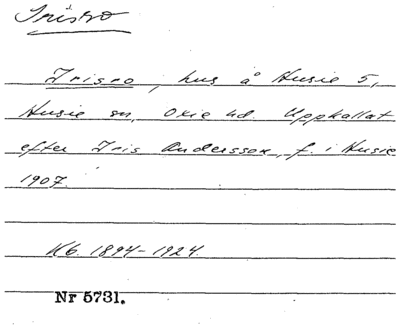 Irisro
Irisro, hus å Husie 5,
Husie sn, Oxie hd. Uppkallat
efter Iris Andersson, f. i Husie
1907.
Kb. 1894-1924.
Nr 5731.